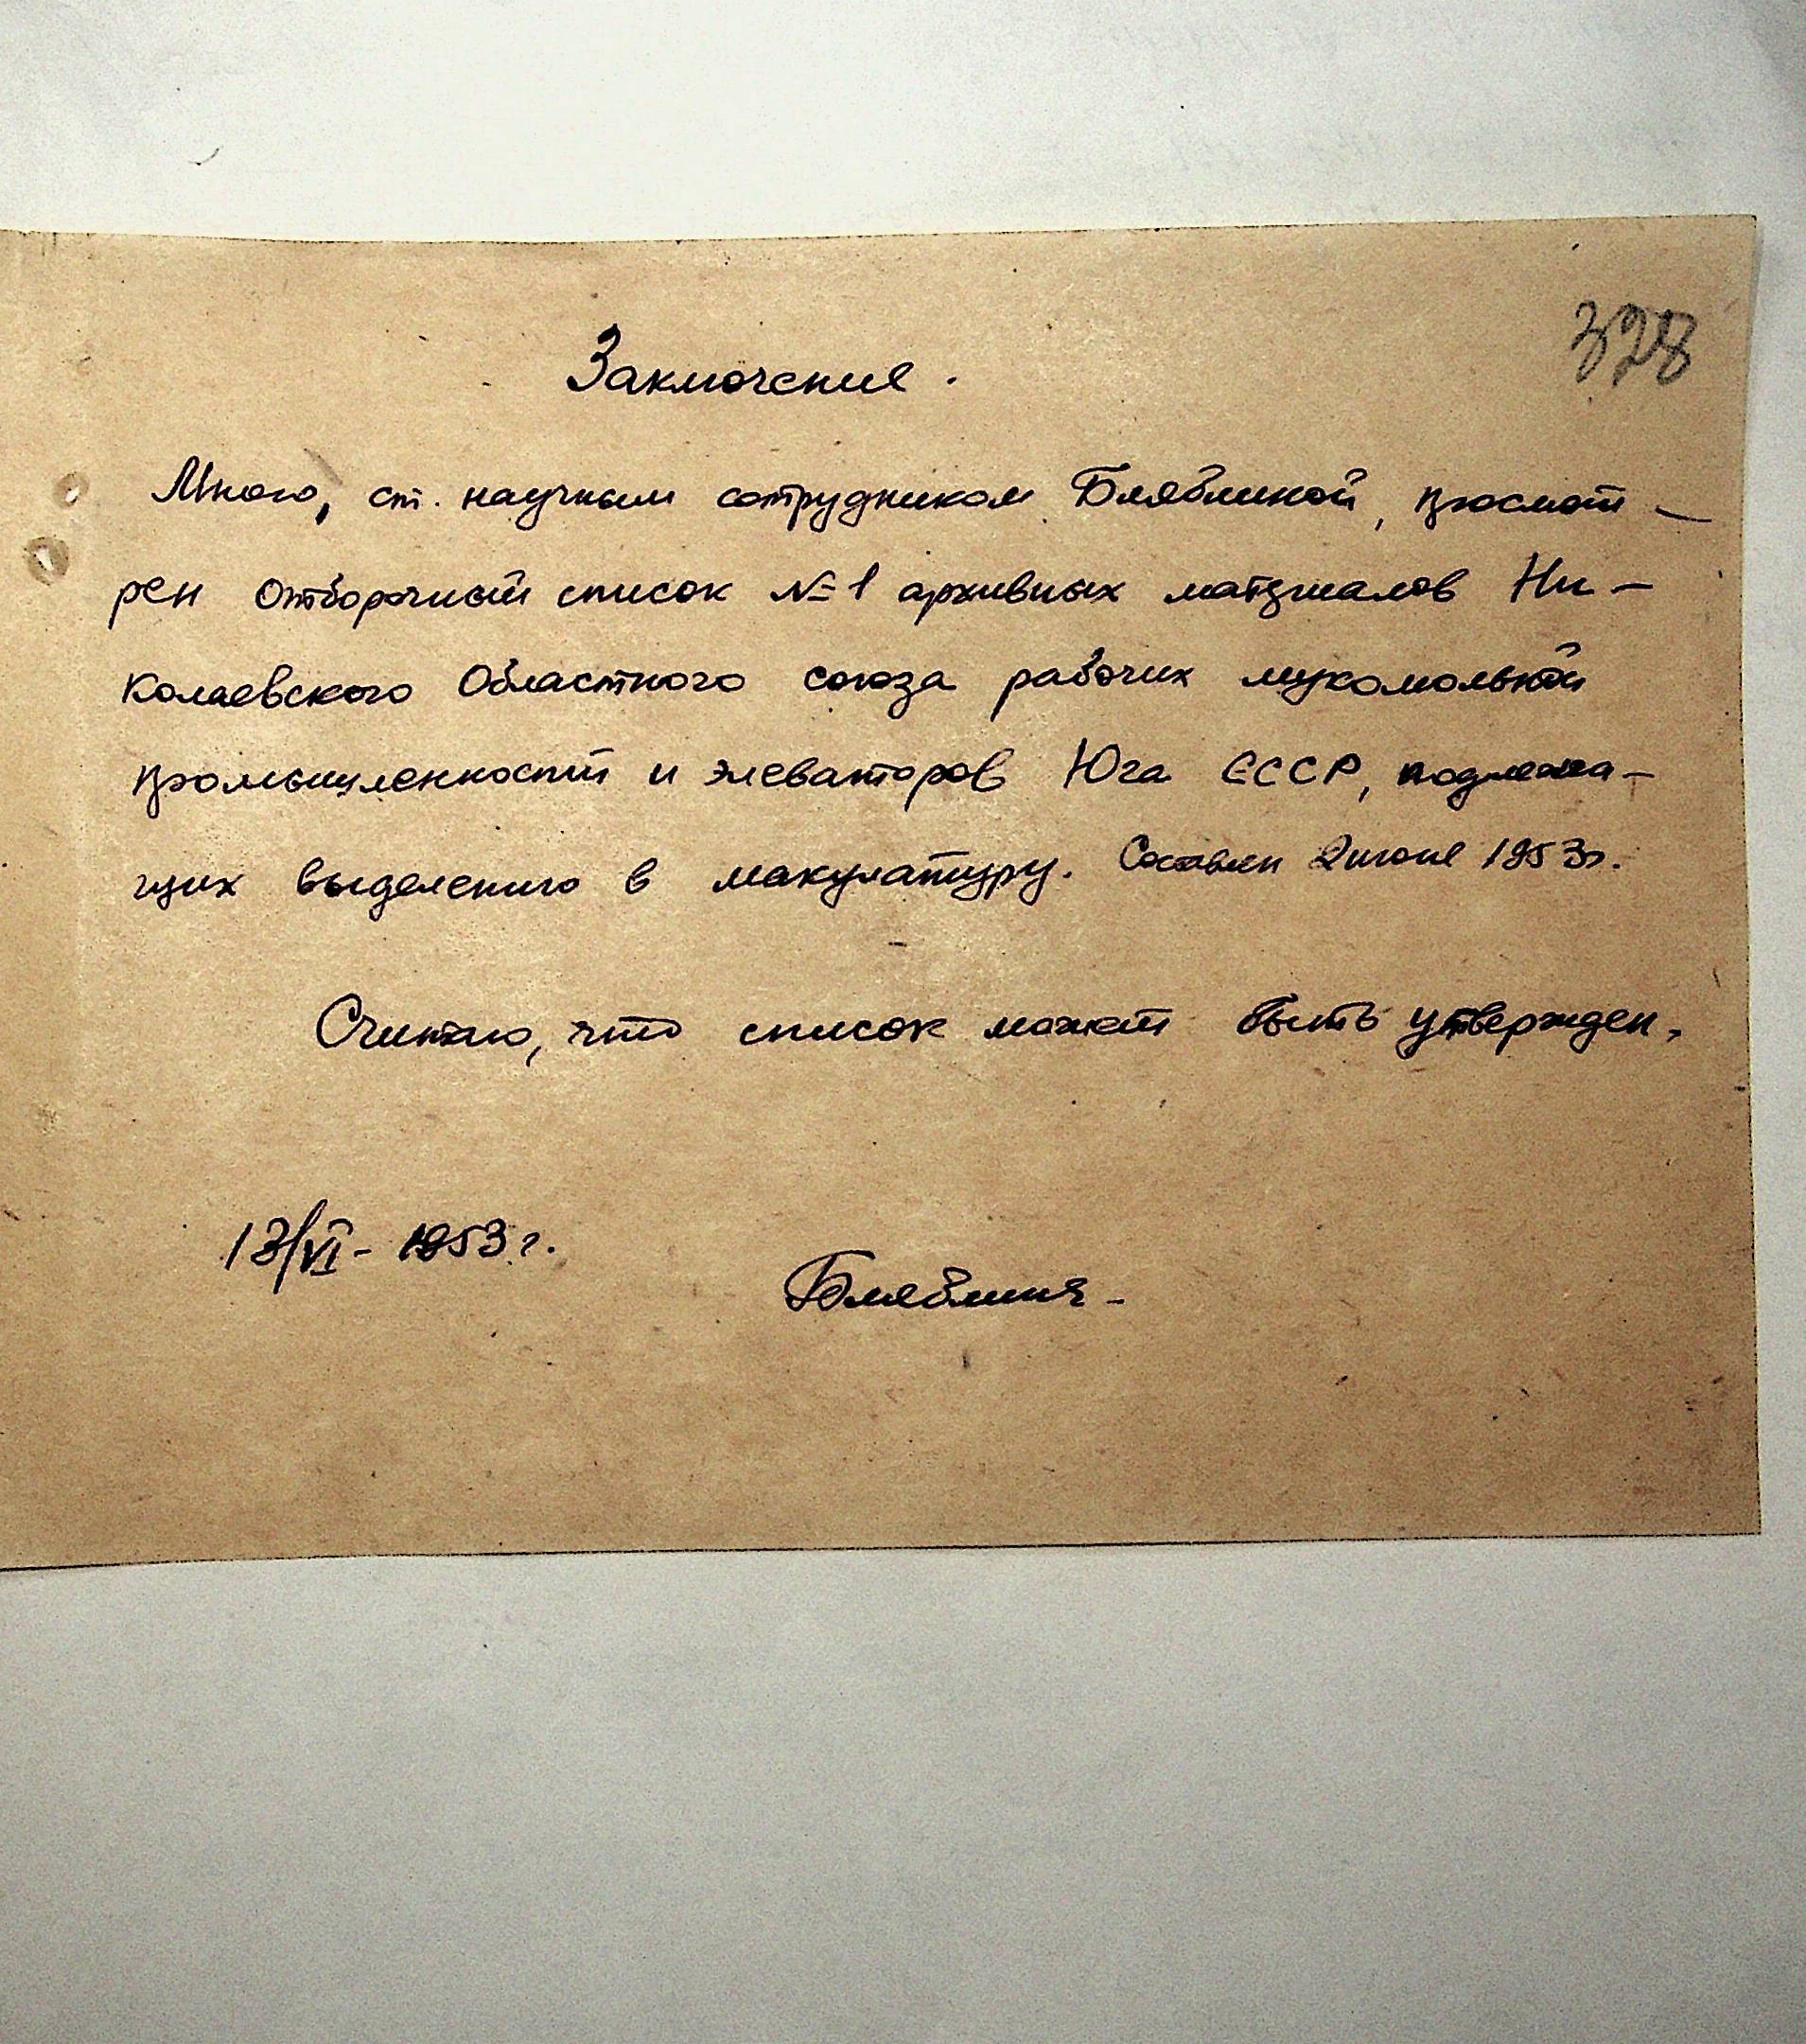 328
Заключение.
Мною, ст. научным сотрудником Бляблиной, просмот-
рен отборочный список № 1 архивных материалов Ни-
колаевского Областного союза рабочих мукомольной
промышленности и элеваторов Юга СССР, подлежа-
щих выделению в макулатуру. Составлен 2 июне 1953г.
Считаю, что список может быть утвержден.
13/VI - 1953 г.
Бляблина